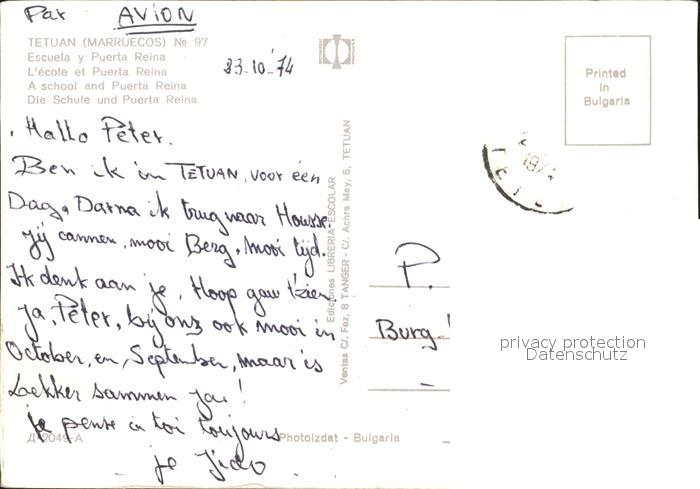 Par AVION
TETUAN (MARRUECOS) № 97
Escuela y Puerta Reina
L'école et Puerta Reina
A school and Puerta Reina
Die Schule und Puerta Reina
23-10-'74
Printed
in
Bulgaria
Hallo Péter.
Ben ik in TETUAN, voor één
Dag, Darna ik trug naar
Jij cannen, mooi Berg, mooi tijd.
Ik denk aan je, Hoop gauw t'zien
Ja, Péter, bij ons ook mooi in
October, en, September, maar is
Lekker sammen ja!
je pense a toi toujours
je
Ediciones LIBRERIA-ESCOLAR
Ventas C/. Fez, 8 TANGER - C/. Achra May, 5, TETUAN
P.
Burg
privacy protection
Datenschutz
Д 2049-A
Photoizdat - Bulgaria